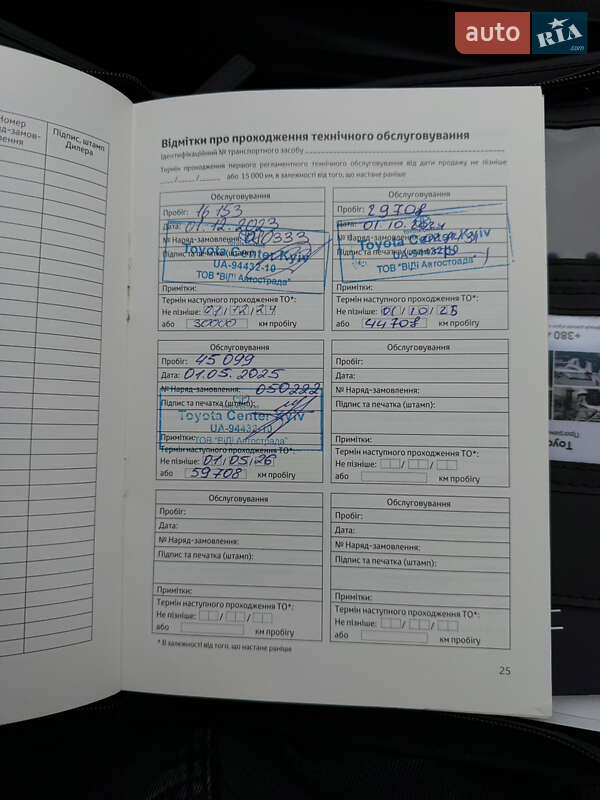 auto RIA .com
Номер
яд-замов-
ення
Підпис, штамп
Дилера
Відмітки про проходження технічного обслуговування
Ідентифікаційний № транспортного засобу
Термін проходження першого регламентного технічного обслуговування від дати продажу не пізніше
___/___/___ або 15 000 км, в залежності від того, що настане раніше
Обслуговування
Пробіг: 16 153
Дата: 01.12.2023
№ Наряд-замовлення: 010333
Підпис та печатка (штамп):
Toyota Center Kyiv
UA-94432-10
ТОВ "ВіДі Автострада"
Примітки:
Термін наступного проходження ТО*:
Не пізніше: 01/12/24
або 30000 км пробігу
Обслуговування
Пробіг: 29708
Дата: 01.10.2024
№ Наряд-замовлення:
Підпис та печатка
Toyota Center Kyiv
UA-94432-10
ТОВ "ВіДі Автострада"
Примітки:
Термін наступного проходження ТО*:
Не пізніше: 01/10/25
або 44708 км пробігу
Обслуговування
Пробіг: 45 099
Дата: 01.05.2025
№ Наряд-замовлення: 050222
Підпис та печатка (штамп):
Toyota Center Kyiv
UA-94432-10
Примітки:
ТОВ "ВіДі Автострада"
Термін наступного проходження ТО*:
Не пізніше: 01/05/26
або 59708 км пробігу
Обслуговування
Пробіг:
Дата:
№ Наряд-замовлення:
Підпис та печатка (штамп):
Примітки:
Термін наступного проходження ТО*:
Не пізніше: / /
або км пробігу
Обслуговування
Пробіг:
Дата:
№ Наряд-замовлення:
Підпис та печатка (штамп):
Примітки:
Термін наступного проходження ТО*:
Не пізніше: / /
або км пробігу
Обслуговування
Пробіг:
Дата:
№ Наряд-замовлення:
Підпис та печатка (штамп):
Примітки:
Термін наступного проходження ТО*:
Не пізніше: / /
або км пробігу
* В залежності від того, що настане раніше
25
+380